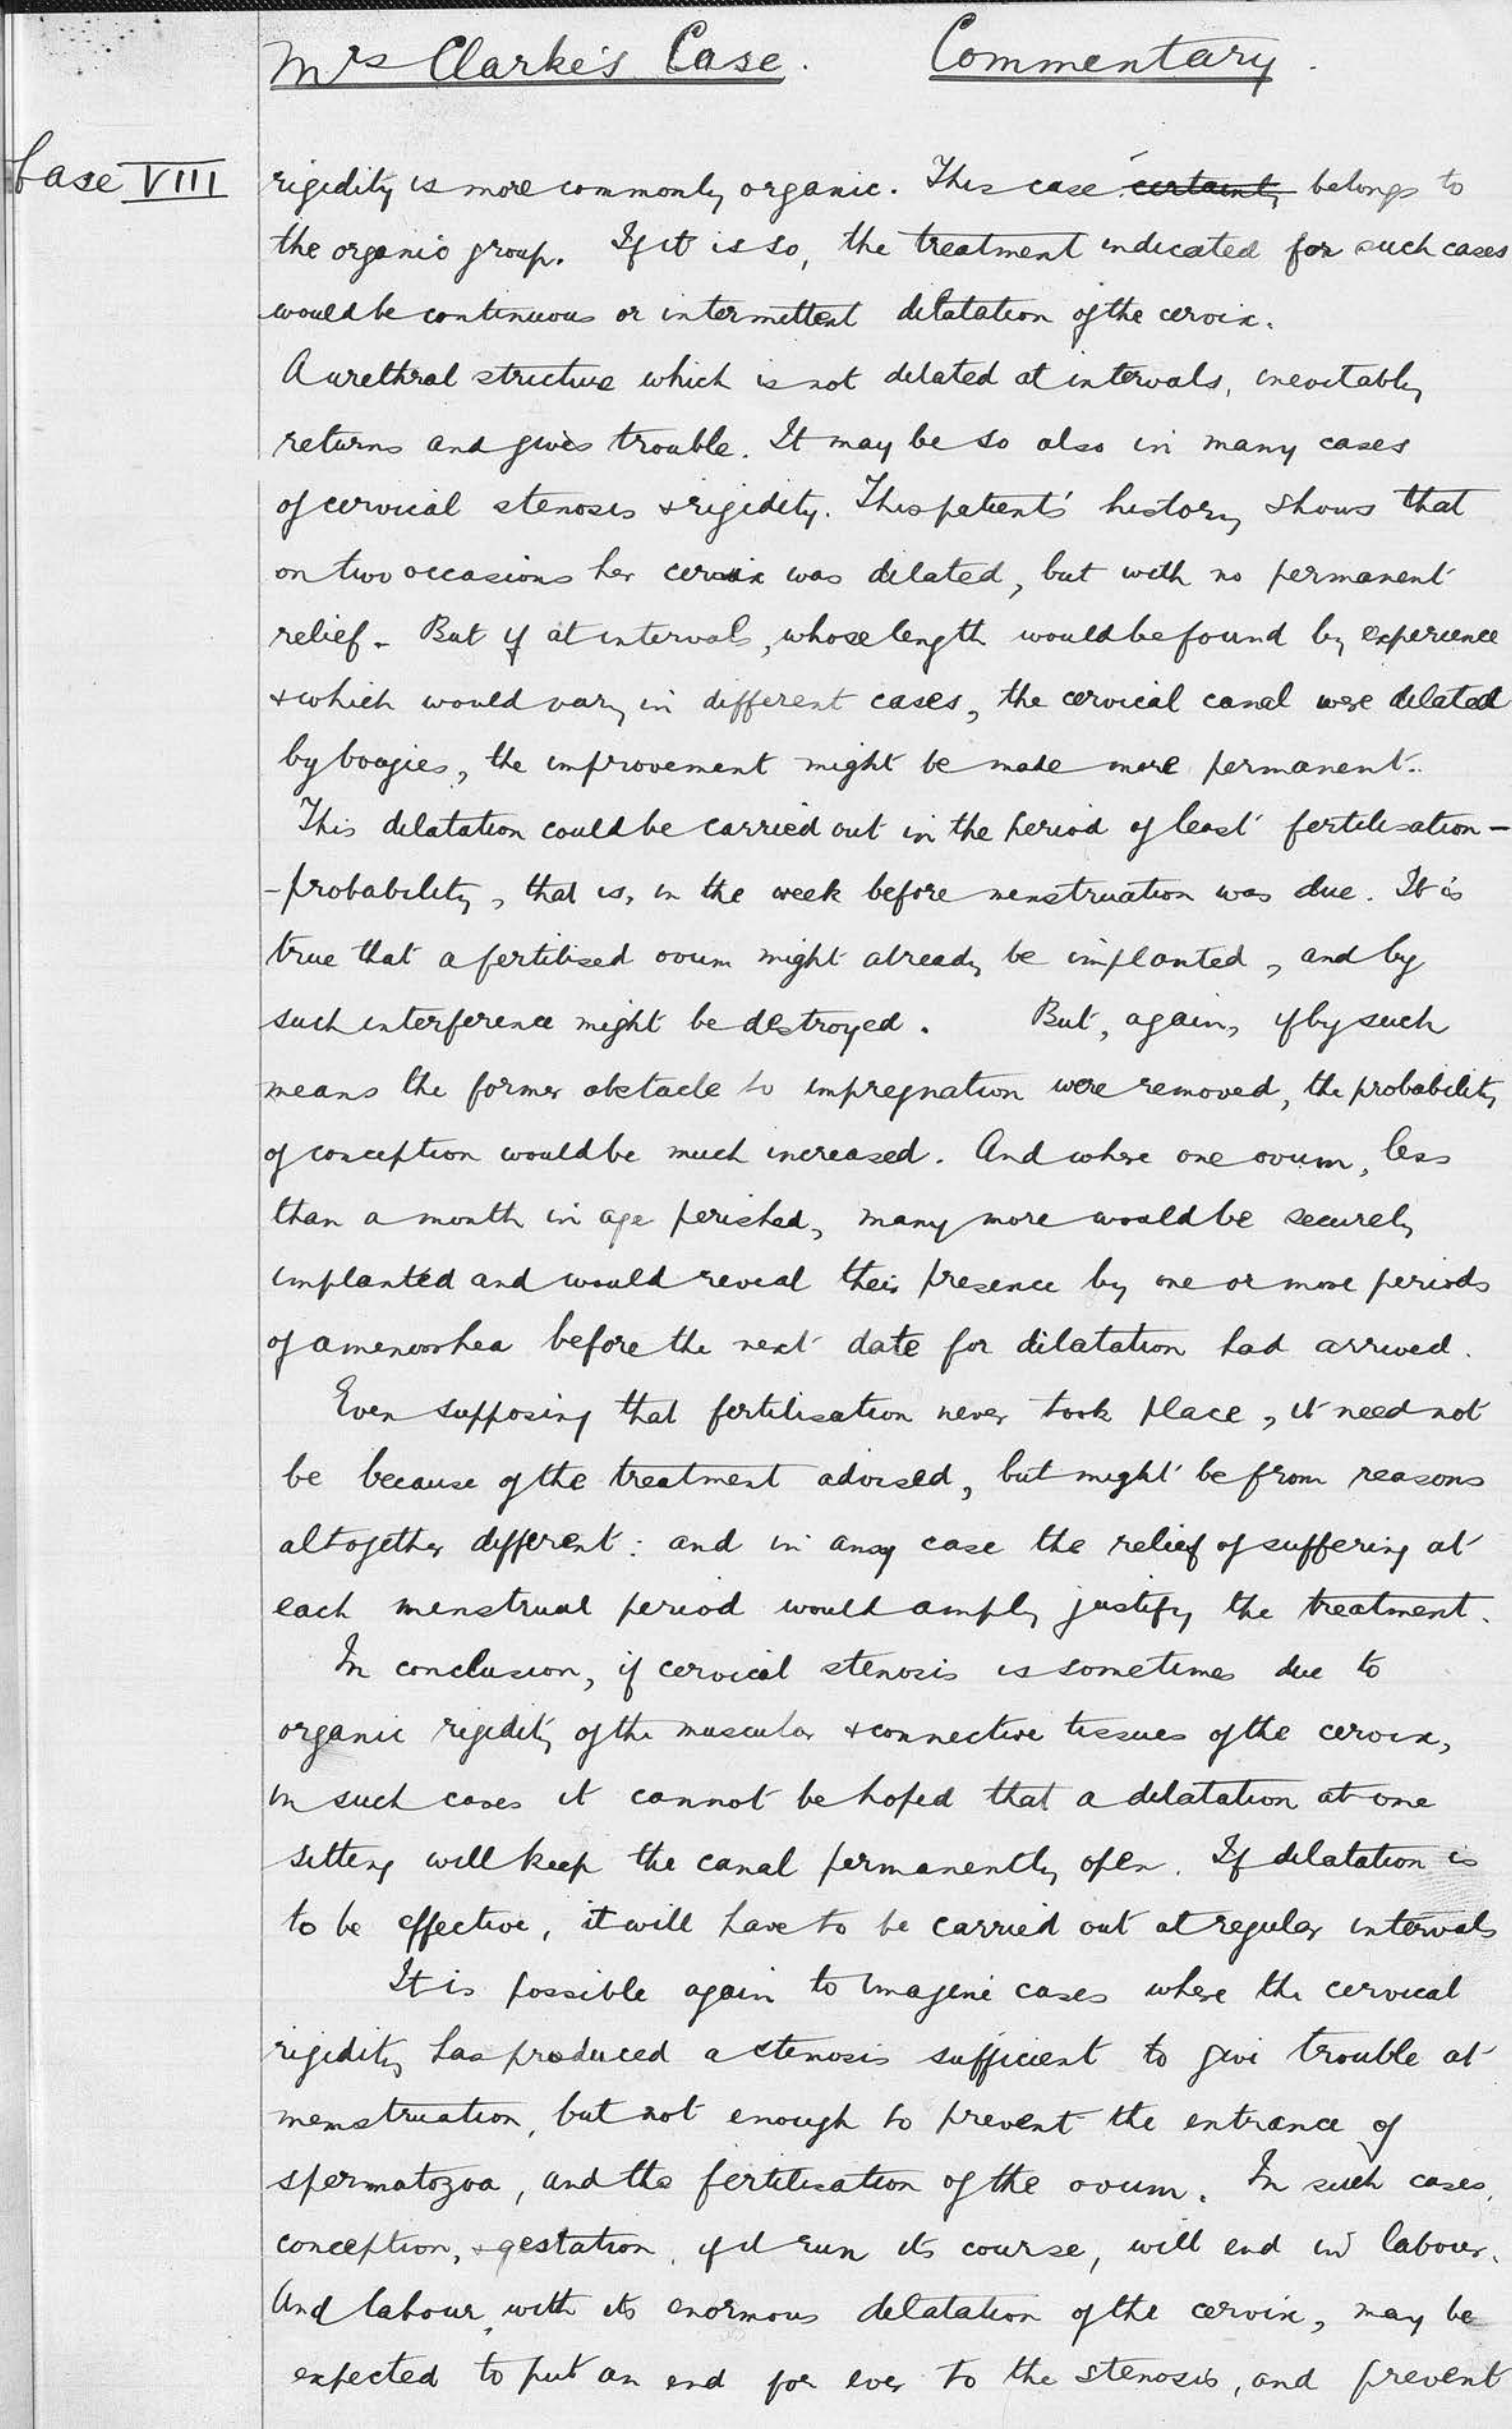 Mrs Clarke's Case. Commentary.
Case VIII
rigidity is more commonly organic. This case certainly belongs to
the organic group. If it is so, the treatment indicated for such cases
would be continuous or intermittent dilatation of the cervix.
A urethral stricture which is not dilated at intervals, inevitably
returns and gives trouble. It may be so also in many cases
of cervical stenosis & rigidity. This patient's history shows that
on two occasions her cervix was dilated, but with no permanent
relief. But if at intervals, whose length would be found by experience
& which would vary in different cases, the cervical canal were dilated
by bougies, the improvement might be made more permanent.
This dilatation could be carried out in the period of least fertilisation-
-probability, that is, in the week before menstruation was due. It is
true that a fertilised ovum might already be implanted, and by
such interference might be destroyed. But, again, if by such
means the former obstacle to impregnation were removed, the probability
of conception would be much increased. And where one ovum, less
than a month in age perished, many more would be securely
implanted and would reveal their presence by one or more periods
of amenorrhea before the next date for dilatation had arrived.
Even supposing that fertilisation never took place, it need not
be because of the treatment advised, but might be from reasons
altogether different: and in any case the relief of suffering at
each menstrual period would amply justify the treatment.
In conclusion, if cervical stenosis is sometimes due to
organic rigidity of the muscular & connective tissues of the cervix,
in such cases it cannot be hoped that a dilatation at one
sitting will keep the canal permanently open. If dilatation is
to be effective, it will have to be carried out at regular intervals
It is possible again to imagine cases where the cervical
rigidity has produced a stenosis sufficient to give trouble at
menstruation, but not enough to prevent the entrance of
spermatozoa, and the fertilisation of the ovum. In such cases,
conception, & gestation, if it run its course, will end in labour.
And labour, with its enormous dilatation of the cervix, may be
expected to put an end for ever to the stenosis, and prevent